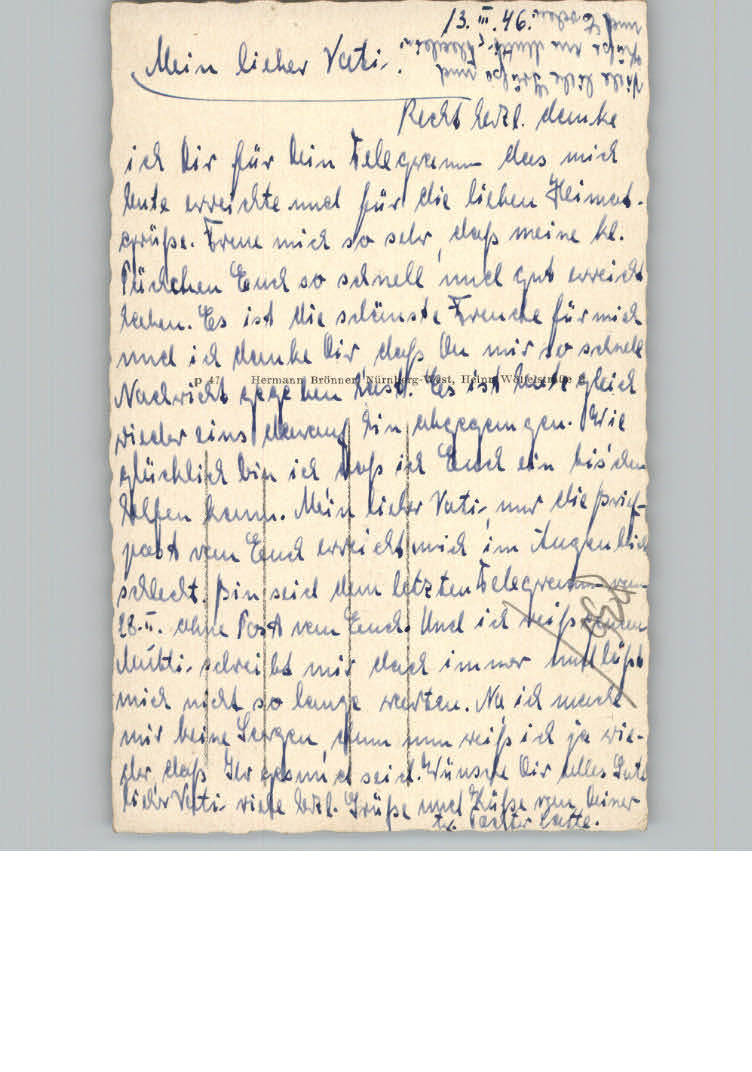 13. III. 46.
Mein lieber Vati,
Recht herzl. danke
ich Dir für Dein Telegramm das mich
heute erreichte und für die lieben Heimat-
grüße. Freue mich so sehr, daß meine kl.
Päckchen Euch so schnell und gut erreicht
haben. Es ist die schönste Freude für mich
und ich danke Dir daß Du mir so schnell
p 47 Hermann Brönner, Nürnberg-West, Heinr. Wölfelstraße
Nachricht gegeben hast. Es ist heute gleich
wieder eins darauf hin abgegangen. Wie
glücklich bin ich daß ich Euch ein bis'chen
helfen kann. Mein lieber Vati, nur die Brief-
post von Euch erreicht mich im Augenblick
schlecht. Bin seid dem letzten Telegramm vom
28. II. ohne Post von Euch. Und ich weiß
Mutti schreibt mir doch immer und läßt
mich nicht so lange warten. Na ich mache
mir keine Sorgen denn nun weiß ich ja wie-
der daß Ihr gesund seid. Wünsche Dir alles Gute
lieber Vati viele herzl. Grüße und Küße von Deiner
Tochter Lotte.
Viele liebe Grüße und
Küße an Mutti,
und